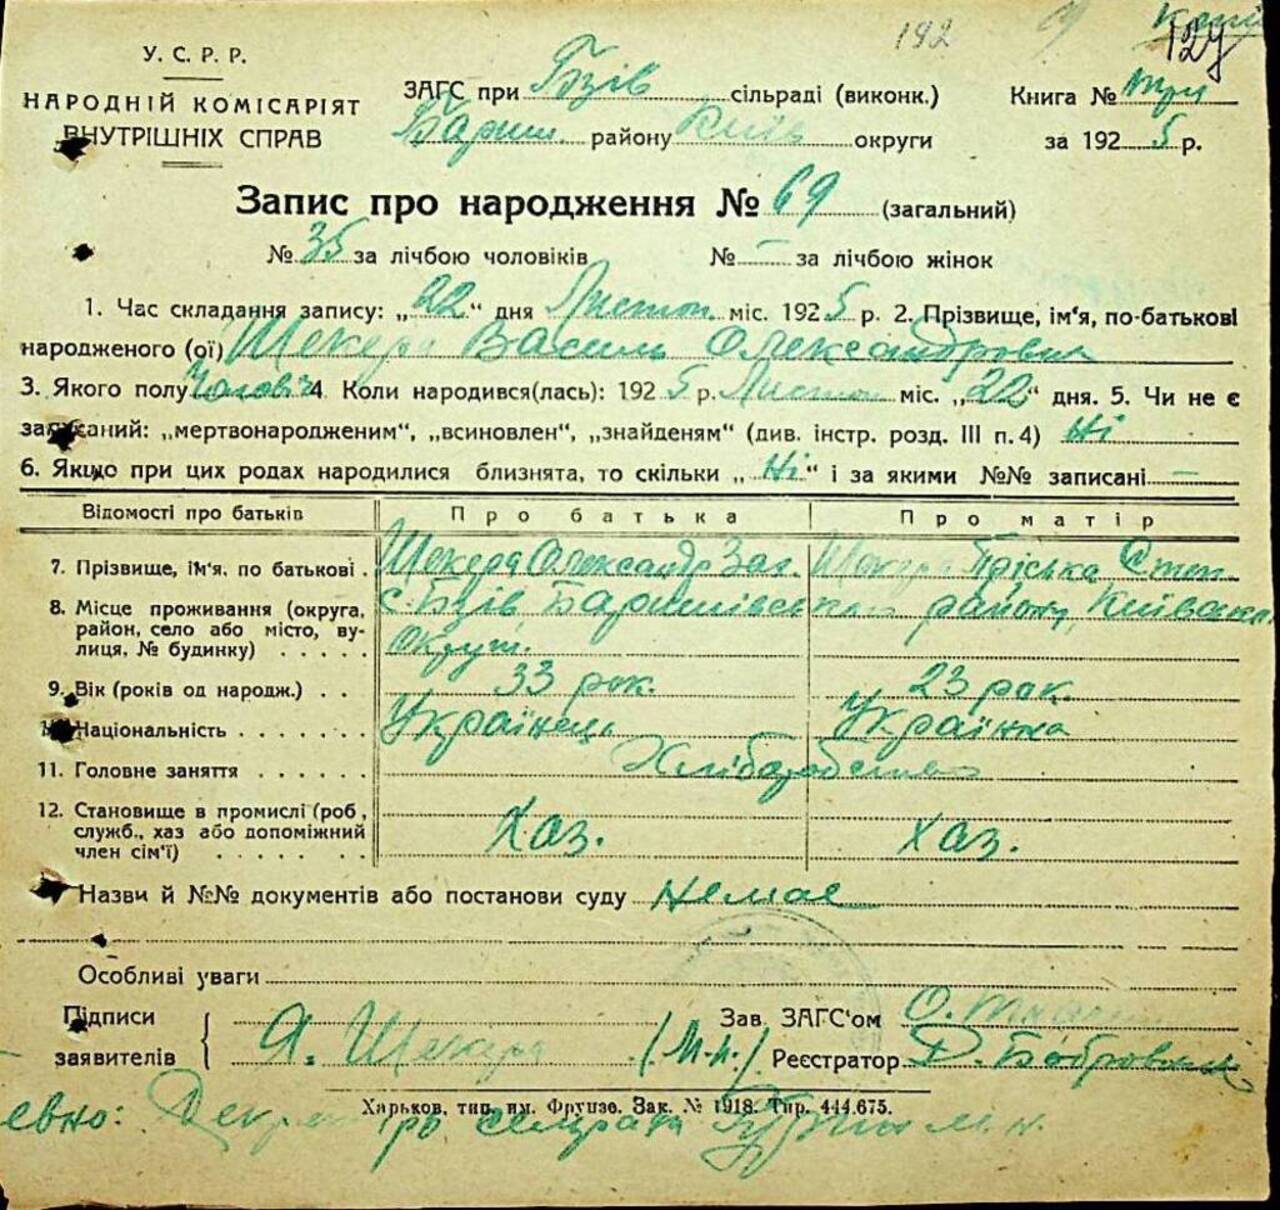 192
127
У. С. Р. Р.
НАРОДНІЙ КОМІСАРІЯТ
ВНУТРІШНІХ СПРАВ
ЗАГС при Бзів сільраді (виконк.)
Бариш. району Київ округи
Книга № три
за 1925 р.
Запис про народження № 69 (загальний)
№ 35 за лічбою чоловіків № — за лічбою жінок
1. Час складання запису: „22“ дня Листоп. міс. 1925 р. 2. Прізвище, ім'я, по-батькові
народженого (ої) Шекера Василь Олександрович
3. Якого полу Чолович 4. Коли народився(лась): 1925 р. Листоп міс. „22“ дня. 5. Чи не є
записаний: „мертвонародженим“, „всиновлен“, „знайденям“ (див. інстр. розд. III п. 4) Ні
6. Якщо при цих родах народилися близнята, то скільки „Ні“ і за якими №№ записані —
Відомості про батьків Про батька Про матір
7. Прізвище, ім'я, по батькові . Шекера Олександр Зах. Шекера Пріська Степ.
8. Місце проживання (округа, с. Бзів, Баришівського району, Київської
район, село або місто, ву- округи.
лиця, № будинку) . . . . .
9. Вік (років од народж.) . . 33 рок. 23 рок.
10. Національність . . . . . . . Українець Українка
11. Головне заняття . . . . . . Хліборобство
12. Становище в промислі (роб,
служб., хаз або допоміжний Хаз. Хаз.
член сім'ї) . . . . . . .
Назви й №№ документів або постанови суду немає
Особливі уваги
Підписи
заявителів { Я. Шекера (М.п.)
Зав. ЗАГС'ом О.
Реєстратор Д. Бобровник
Харьков, тип. им. Фрунзе. Зак. № 1918. Тир. 444.675.
евно: Секретарь сельрата м. п.